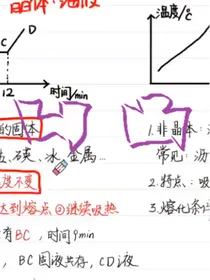 晶体:
D
C
12
时间/min
温度/℃
的固体
、碳、冰、金属…
度不变
达到熔点②继续吸热
有BC,时间9min
,BC固液共存,CD液
1.非晶体:
常见:沥
2.特点:吸
3.熔化条件